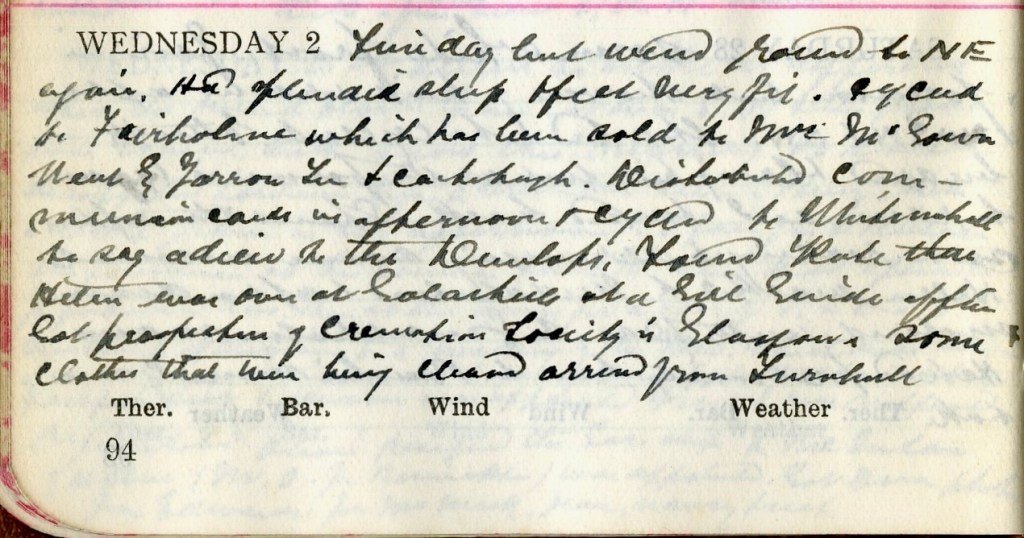 WEDNESDAY 2 Fine day but wind round to NE
again. Had splendid sleep & feel very fit. Cycled
to Fairholme which has been sold to Mrs McGowan
Went by Yarrow Lea & . Distributed com-
munion cards in afternoon & cycled to Whitmuirhall
to say adieu to the Dunlops, Found Kate there
Helen was over at Galashiels at a Girl Guide affair
Got prospectus of Cremation Society in Glasgow. Some
clothes that were being cleaned arrived from Turnbull
Ther. Bar. Wind Weather
94